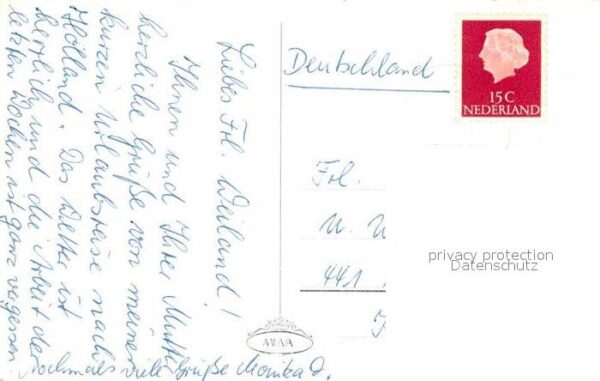 Liebes Frl. Weiland!
Ihnen und Ihrer Mutter
herzliche Grüße von meiner
kurzen Urlaubsreise nach
Holland. Das Wetter ist
herrlich und die Arbeit der
letzten Wochen ist ganz vergessen.
Nochmals viele Grüße Monika D.
Deutschland
15 C
NEDERLAND
Frl.
441
privacy protection
Datenschutz